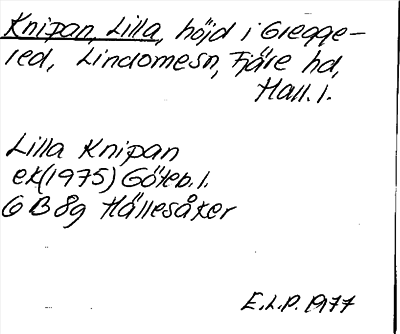 Knipan, Lilla, höjd i Gregge-
red, Lindomesn, Fjäre hd,
Hall.l.
Lilla Knipan
ek(1975) Göteb.l.
6 B 8g Hällesåker
E.L.P. 1977